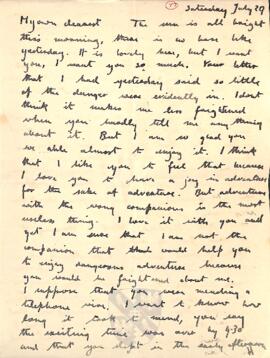 Saturday July 29
My own dearest The sun is all bright
this morning, there is no haze like
yesterday. It is lovely here, but I want
you, I want you so much. Your letter
that I had yesterday said so little
of the danger were evidently in. I don't
think it makes me less frightened
when you hardly tell me any thing
about it. But I am so glad you
were able almost to enjoy it. I think
that I like you to feel that because
I love you to have a joy in adventure
for the sake of adventure. But adventure
with the wrong companion is the most
useless thing. I love it with you and
yet I am sure that I am not the
companion that would help you
to enjoy dangerous adventure because
you would be frightened about me.
I suppose that you were mending a
telephone wire. I want to know how
long it took to mend, you say
the exciting time was over by 9.30
and that you slept in the early afternoon